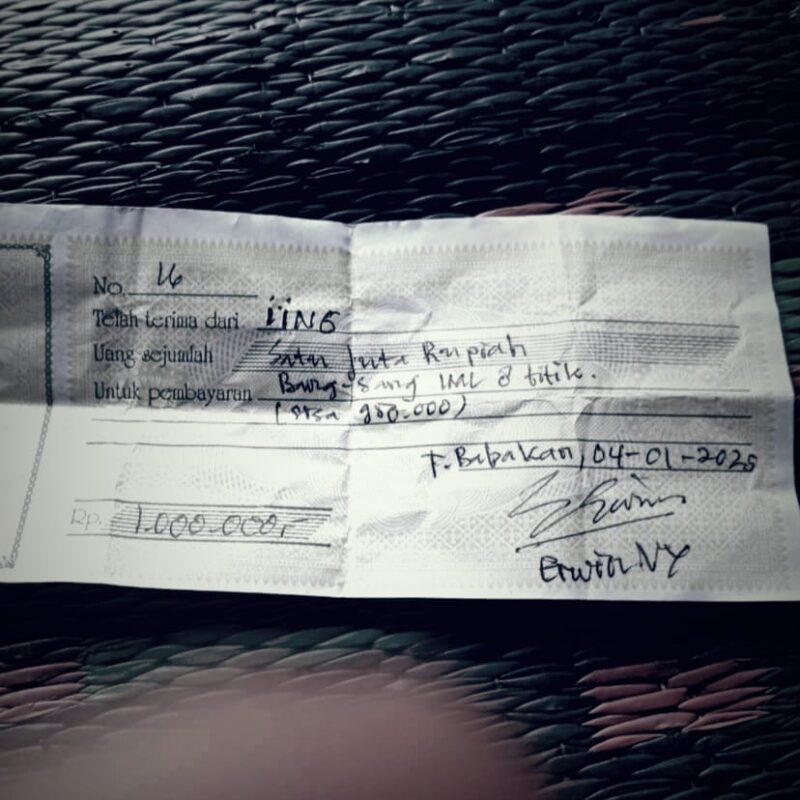 No. 16
Telah terima dari iiNG
Uang sejumlah Satu Juta Rupiah
Untuk pembayaran titik.
(Sisa 950.000)
T. Babakan, 04-01-2025
Rp. 1.000.000,-
Erwin NY